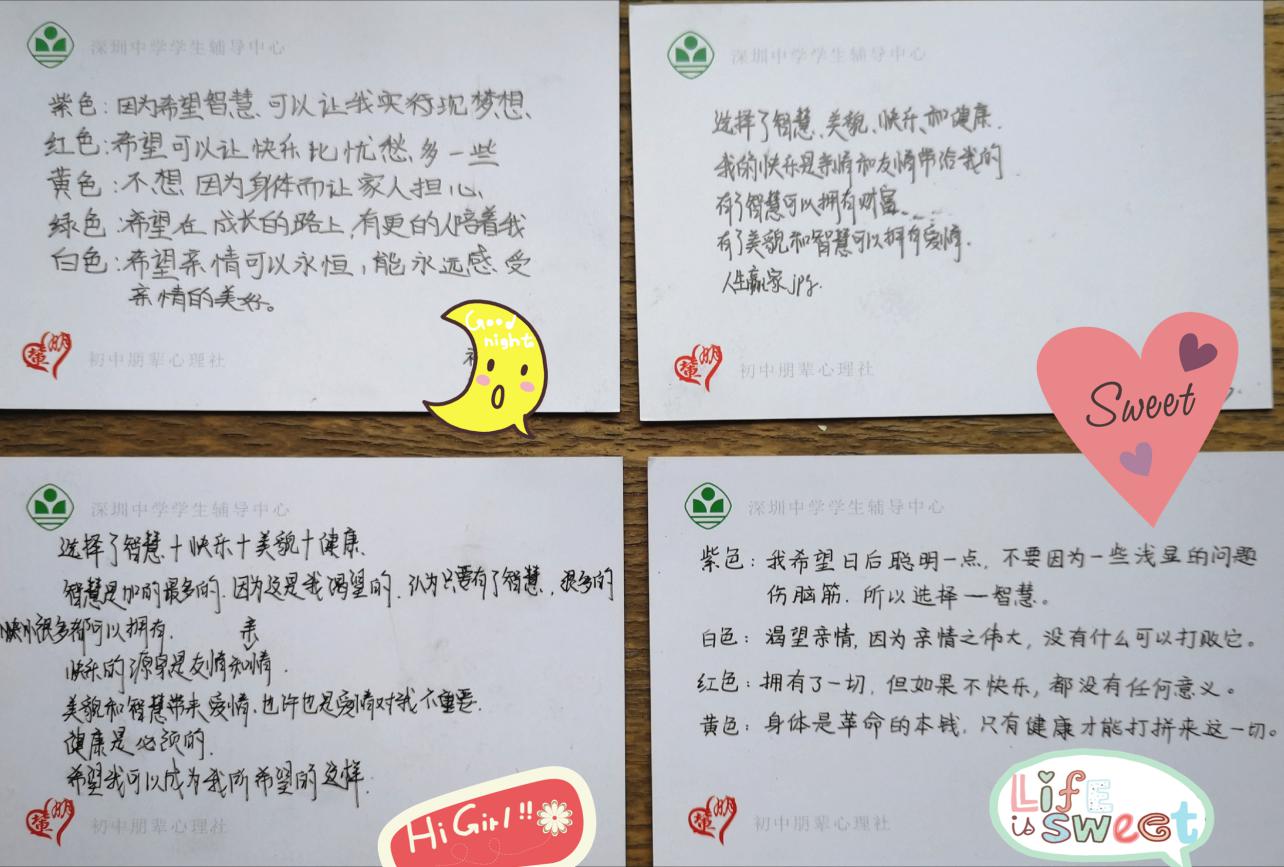 深圳中学学生辅导中心
紫色:因为希望智慧、可以让我实行现梦想、
红色:希望可以让快乐比忧愁、多一些
黄色:不想因为身体而让家人担心、
绿色:希望在成长的路上,有更的人陪着我
白色:希望亲情可以永恒,能永远感受
亲情的美好。
Good
night
初中朋辈心理社
深圳中学学生辅导中心
选择了智慧、美貌、快乐、和健康.
我的快乐是亲情和友情带给我的
有了智慧可以拥有财富、……
有了美貌和智慧可以拥有爱情.
人生赢家.jpg.
Sweet
初中朋辈心理社
深圳中学学生辅导中心
选择了智慧+快乐+美貌+健康、
智慧是加的最多的.因为这是我渴望的.认为只要有了智慧,很多的
很多都可以拥有.
亲
快乐的源泉是友情和情.
美貌和智慧带来爱情.也许也是爱情对我不重要.
健康是必须的.
希望我可以成为我所希望的这样.
Hi Girl!!
初中朋辈心理社
深圳中学学生辅导中心
紫色:我希望日后聪明一点,不要因为一些浅显的问题
伤脑筋.所以选择一智慧。
白色:渴望亲情,因为亲情之伟大,没有什么可以打败它。
红色:拥有了一切,但如果不快乐,都没有任何意义。
黄色:身体是革命的本钱,只有健康才能打拼来这一切。
Life
is sweet
初中朋辈心理社